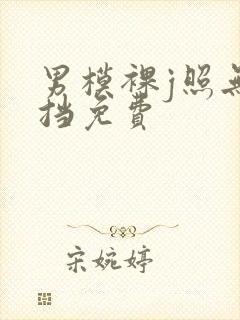 男模裸j照无
挡免費
宋婉婷